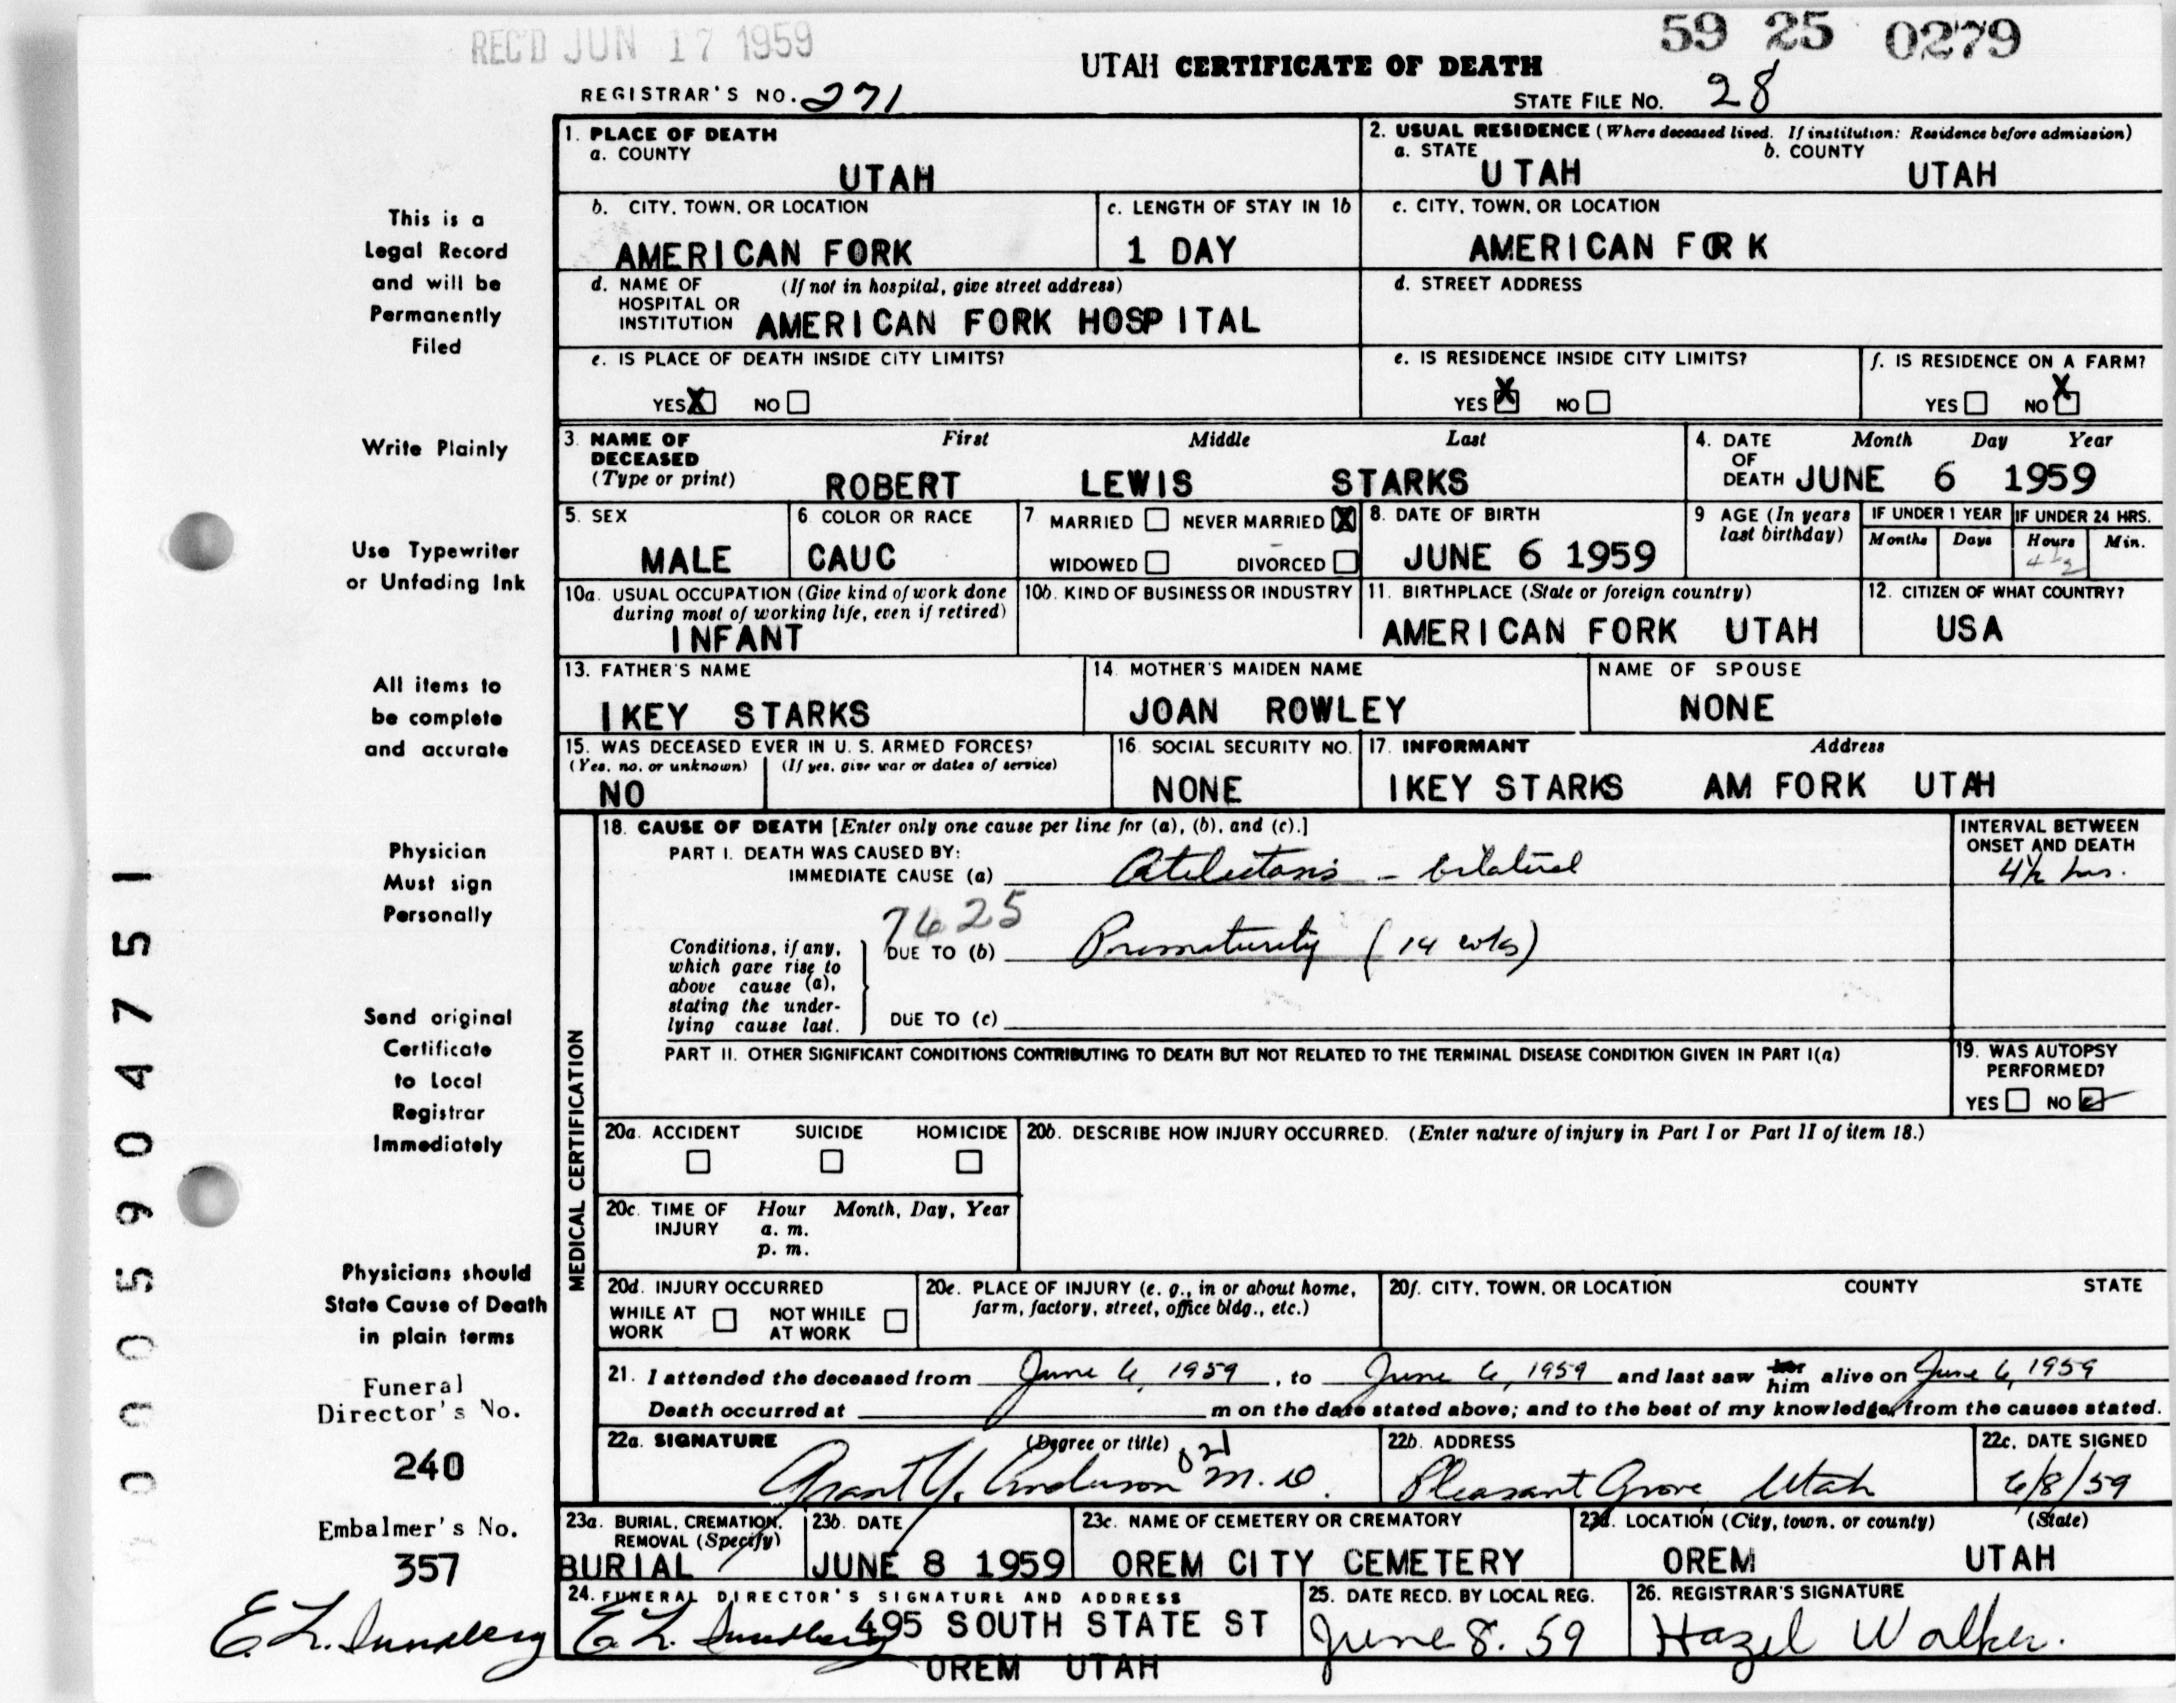 REC'D JUN 17 1959
59 25 0279
UTAH CERTIFICATE OF DEATH
REGISTRAR'S NO. 271
STATE FILE NO. 28
1. PLACE OF DEATH
a. COUNTY
UTAH
2. USUAL RESIDENCE (Where deceased lived. If institution: Residence before admission)
a. STATE b. COUNTY
UTAH UTAH
b. CITY, TOWN, OR LOCATION
AMERICAN FORK
c. LENGTH OF STAY IN 1b
1 DAY
c. CITY, TOWN, OR LOCATION
AMERICAN FORK
d. NAME OF (If not in hospital, give street address)
HOSPITAL OR
INSTITUTION AMERICAN FORK HOSPITAL
d. STREET ADDRESS
e. IS PLACE OF DEATH INSIDE CITY LIMITS?
YES X NO
e. IS RESIDENCE INSIDE CITY LIMITS?
YES X NO
f. IS RESIDENCE ON A FARM?
YES NO X
3. NAME OF DECEASED (Type or print)
First Middle Last
ROBERT LEWIS STARKS
4. DATE OF DEATH
Month Day Year
JUNE 6 1959
5. SEX
MALE
6. COLOR OR RACE
CAUC
7. MARRIED NEVER MARRIED X
WIDOWED DIVORCED
8. DATE OF BIRTH
JUNE 6 1959
9. AGE (In years last birthday)
IF UNDER 1 YEAR IF UNDER 24 HRS.
Months Days Hours Min.
4 1/2
10a. USUAL OCCUPATION (Give kind of work done during most of working life, even if retired)
INFANT
10b. KIND OF BUSINESS OR INDUSTRY
11. BIRTHPLACE (State or foreign country)
AMERICAN FORK UTAH
12. CITIZEN OF WHAT COUNTRY?
USA
13. FATHER'S NAME
IKEY STARKS
14. MOTHER'S MAIDEN NAME
JOAN ROWLEY
NAME OF SPOUSE
NONE
15. WAS DECEASED EVER IN U. S. ARMED FORCES?
(Yes, no, or unknown) (If yes, give war or dates of service)
NO
16. SOCIAL SECURITY NO.
NONE
17. INFORMANT Address
IKEY STARKS AM FORK UTAH
MEDICAL CERTIFICATION
18. CAUSE OF DEATH [Enter only one cause per line for (a), (b), and (c).]
INTERVAL BETWEEN ONSET AND DEATH
PART I. DEATH WAS CAUSED BY:
IMMEDIATE CAUSE (a) Atelectasis - bilateral
4 1/2 hrs.
7625
Conditions, if any, which gave rise to above cause (a), stating the underlying cause last.
DUE TO (b) Prematurity (14 wks)
DUE TO (c)
PART II. OTHER SIGNIFICANT CONDITIONS CONTRIBUTING TO DEATH BUT NOT RELATED TO THE TERMINAL DISEASE CONDITION GIVEN IN PART I(a)
19. WAS AUTOPSY PERFORMED?
YES NO
20a. ACCIDENT SUICIDE HOMICIDE
20b. DESCRIBE HOW INJURY OCCURRED. (Enter nature of injury in Part I or Part II of item 18.)
20c. TIME OF INJURY Hour Month, Day, Year
a. m.
p. m.
20d. INJURY OCCURRED
WHILE AT WORK NOT WHILE AT WORK
20e. PLACE OF INJURY (e. g., in or about home, farm, factory, street, office bldg., etc.)
20f. CITY, TOWN, OR LOCATION COUNTY STATE
21. I attended the deceased from June 6, 1959, to June 6, 1959 and last saw her him alive on June 6, 1959
Death occurred at m on the date stated above; and to the best of my knowledge, from the causes stated.
22a. SIGNATURE (Degree or title)
Grant Y. Anderson M.D.
22b. ADDRESS
Pleasant Grove Utah
22c. DATE SIGNED
6/8/59
23a. BURIAL, CREMATION, REMOVAL (Specify)
BURIAL
23b. DATE
JUNE 8 1959
23c. NAME OF CEMETERY OR CREMATORY
OREM CITY CEMETERY
23d. LOCATION (City, town, or county) (State)
OREM UTAH
24. FUNERAL DIRECTOR'S SIGNATURE AND ADDRESS
E. L. Sundberg 495 SOUTH STATE ST
OREM UTAH
25. DATE RECD. BY LOCAL REG.
June 8. 59
26. REGISTRAR'S SIGNATURE
Hazel Walker.
This is a
Legal Record
and will be
Permanently
Filed
Write Plainly
Use Typewriter
or Unfading Ink
All items to
be complete
and accurate
Physician
Must sign
Personally
Send original
Certificate
to Local
Registrar
Immediately
Physicians should
State Cause of Death
in plain terms
Funeral
Director's No.
240
Embalmer's No.
357
E. L. Sundberg
0005904751